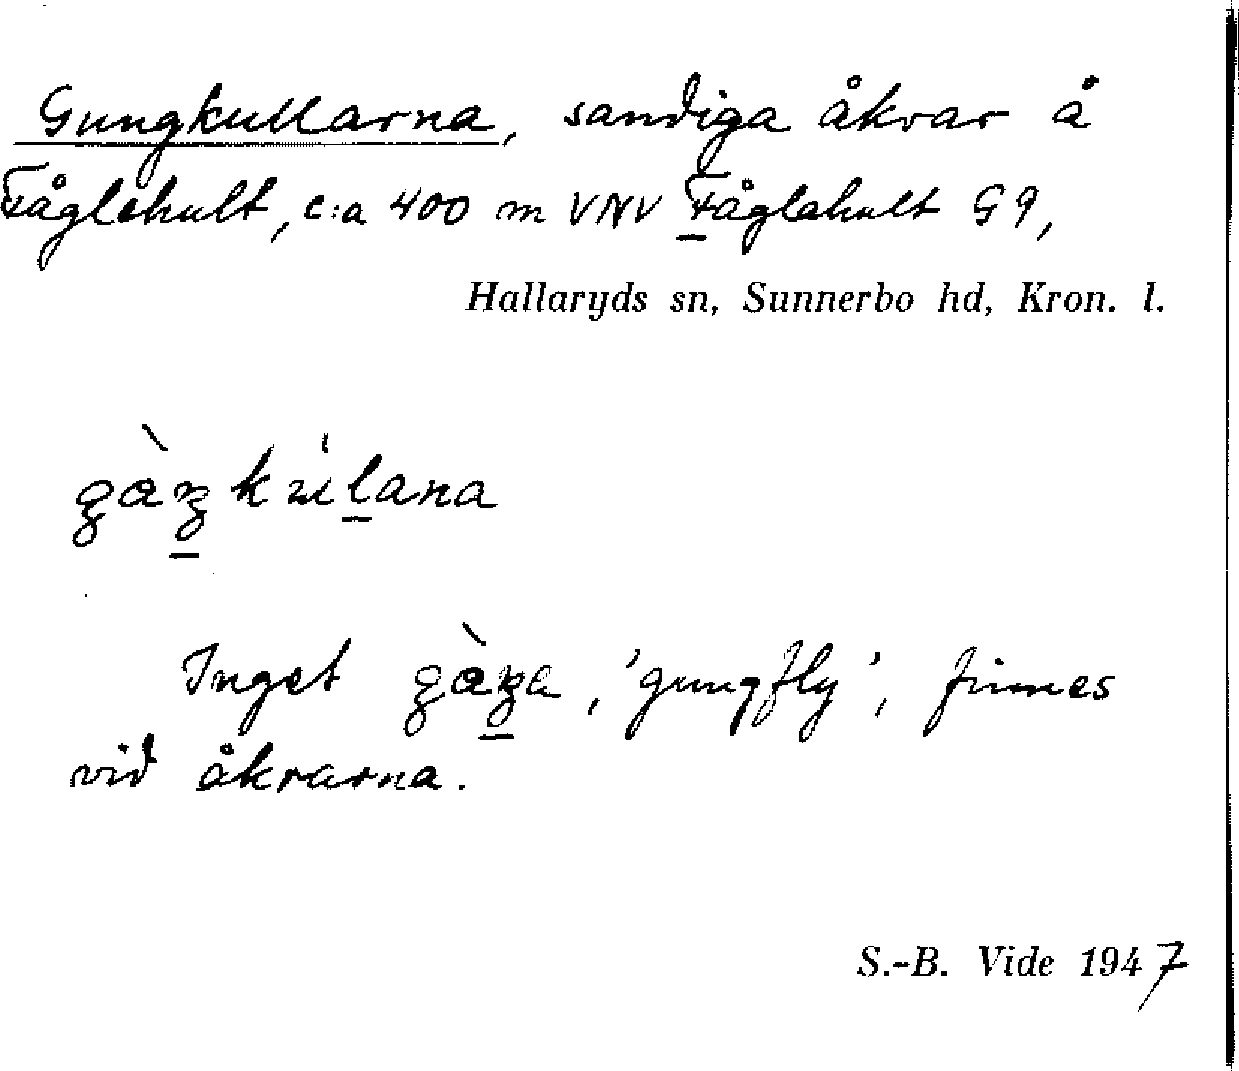 Gungkullarna, sandiga åkrar å
Fåglehult, c:a 400 m VNV Fåglahult G9,
Hallaryds sn, Sunnerbo hd, Kron. l.
Inget , 'gungfly', finnes
vid åkrarna.
S.-B. Vide 1947